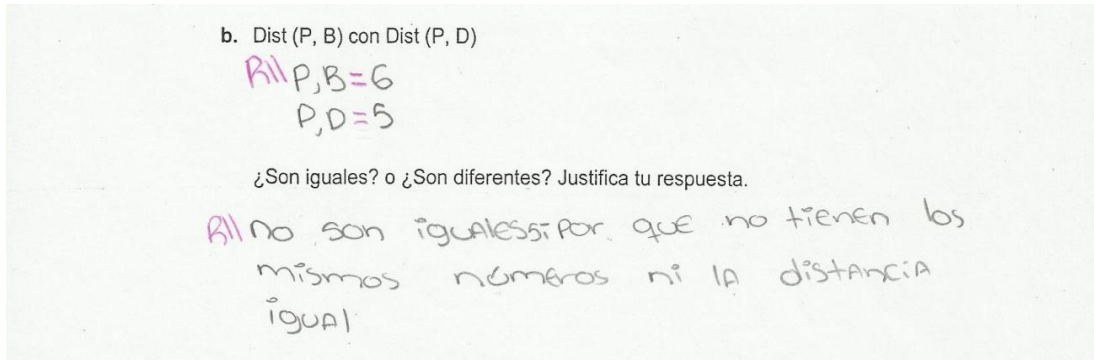 b. Dist (P, B) con Dist (P, D)
R\\ P,B=6
P,D=5
¿Son iguales? o ¿Son diferentes? Justifica tu respuesta.
R\\ no son iguales; por que no tienen los
mismos números ni la distancia
igual